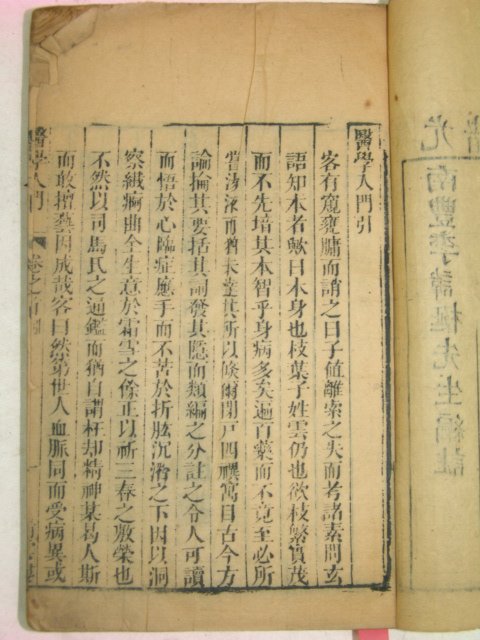 醫學入門引
客有窺甕牖而誚之曰子值離索之失而考諸素問玄
語知本者歟曰本身也枝葉子姓雲仍也欲枝繁實茂
而不先培其本智乎身病多矣遍百藥而不竟至必所
嘗湯液而猶未達其所以倏爾閉戶四禩寓目古今方
論掄其要括其詞發其隱而類編之分註之令人可讀
而悟於心臨症應手而不苦於折肱沉潛之下因以洞
察緘痾曲全生意於霜雪之餘正以祈三春之敷榮也
不然以司馬氏之通鑑而猶自謂枉却精神某曷人斯
而敢擅藝因成哉客曰然第世人血脈同而受病異或
醫學入門
卷之首
南豐李 先生編註